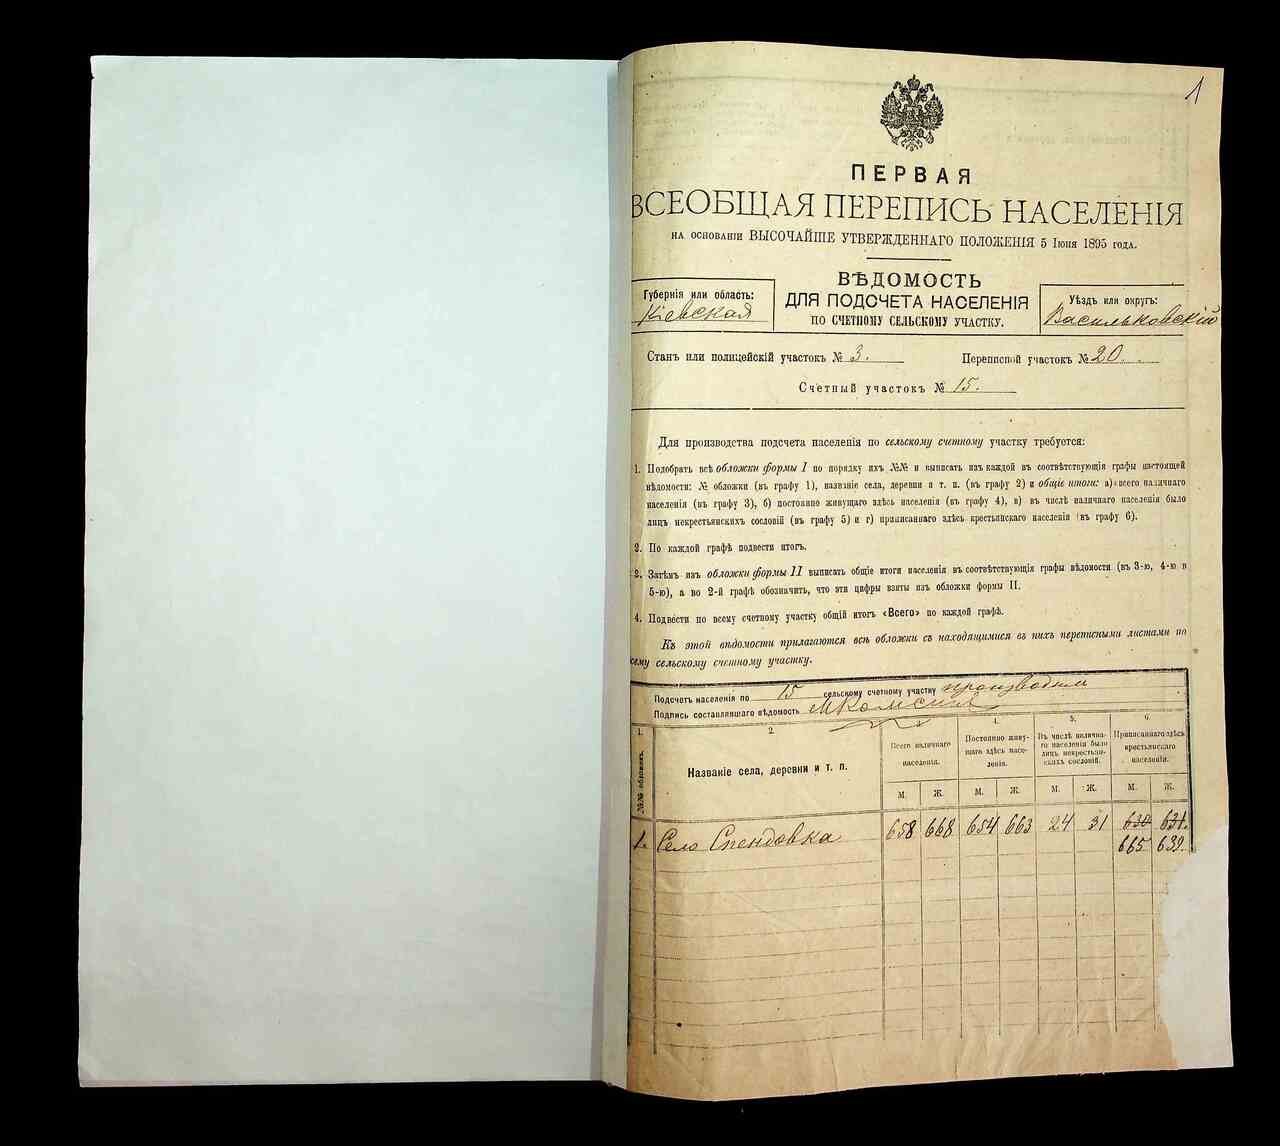 1
ПЕРВАЯ
ВСЕОБЩАЯ ПЕРЕПИСЬ НАСЕЛЕНІЯ
НА ОСНОВАНІИ ВЫСОЧАЙШЕ УТВЕРЖДЕННАГО ПОЛОЖЕНІЯ 5 Іюня 1895 года.
ВѢДОМОСТЬ
ДЛЯ ПОДСЧЕТА НАСЕЛЕНІЯ
ПО СЧЕТНОМУ СЕЛЬСКОМУ УЧАСТКУ.
Губернія или область:
Кіевская
Уѣздъ или округъ:
Васильковскій
Станъ или полицейскій участокъ № 3. Переписной участокъ № 20.
Счетный участокъ № 15.
Для производства подсчета населенія по сельскому счетному участку требуется:
1. Подобрать всѣ обложки формы I по порядку ихъ №№ и выписать изъ каждой въ соотвѣтствующія графы настоящей
вѣдомости: № обложки (въ графу 1), названіе села, деревни и т. п. (въ графу 2) и общіе итоги: а) всего наличнаго
населенія (въ графу 3), б) постоянно живущаго здѣсь населенія (въ графу 4), в) въ числѣ наличнаго населенія было
лицъ некрестьянскихъ сословій (въ графу 5) и г) приписаннаго здѣсь крестьянскаго населенія (въ графу 6).
2. По каждой графѣ подвести итогъ.
3. Затѣмъ изъ обложки формы II выписать общіе итоги населенія въ соотвѣтствующія графы вѣдомости (въ 3-ю, 4-ю и
5-ю), а во 2-й графѣ обозначить, что эти цифры взяты изъ обложки формы II.
4. Подвести по всему счетному участку общій итогъ «Всего» по каждой графѣ.
Къ этой вѣдомости прилагаются всѣ обложки съ находящимися въ нихъ переписными листами по
сему сельскому счетному участку.
Подсчетъ населенія по 15 сельскому счетному участку производилъ
Подпись составлявшаго вѣдомость
1. 2. 4. 5. 6.
№№ обложекъ.
Названіе села, деревни и т. п.
Всего наличнаго
населенія.
Постоянно живу-
щаго здѣсь насе-
ленія.
Въ числѣ налична-
го населенія было
лицъ некрестьян-
скихъ сословій.
Приписаннаго здѣсь
крестьянскаго
населенія.
М. Ж. М. Ж. М. Ж. М. Ж.
1. Село Спендовка 658 668 654 663 24 31 630 631.
665 639.